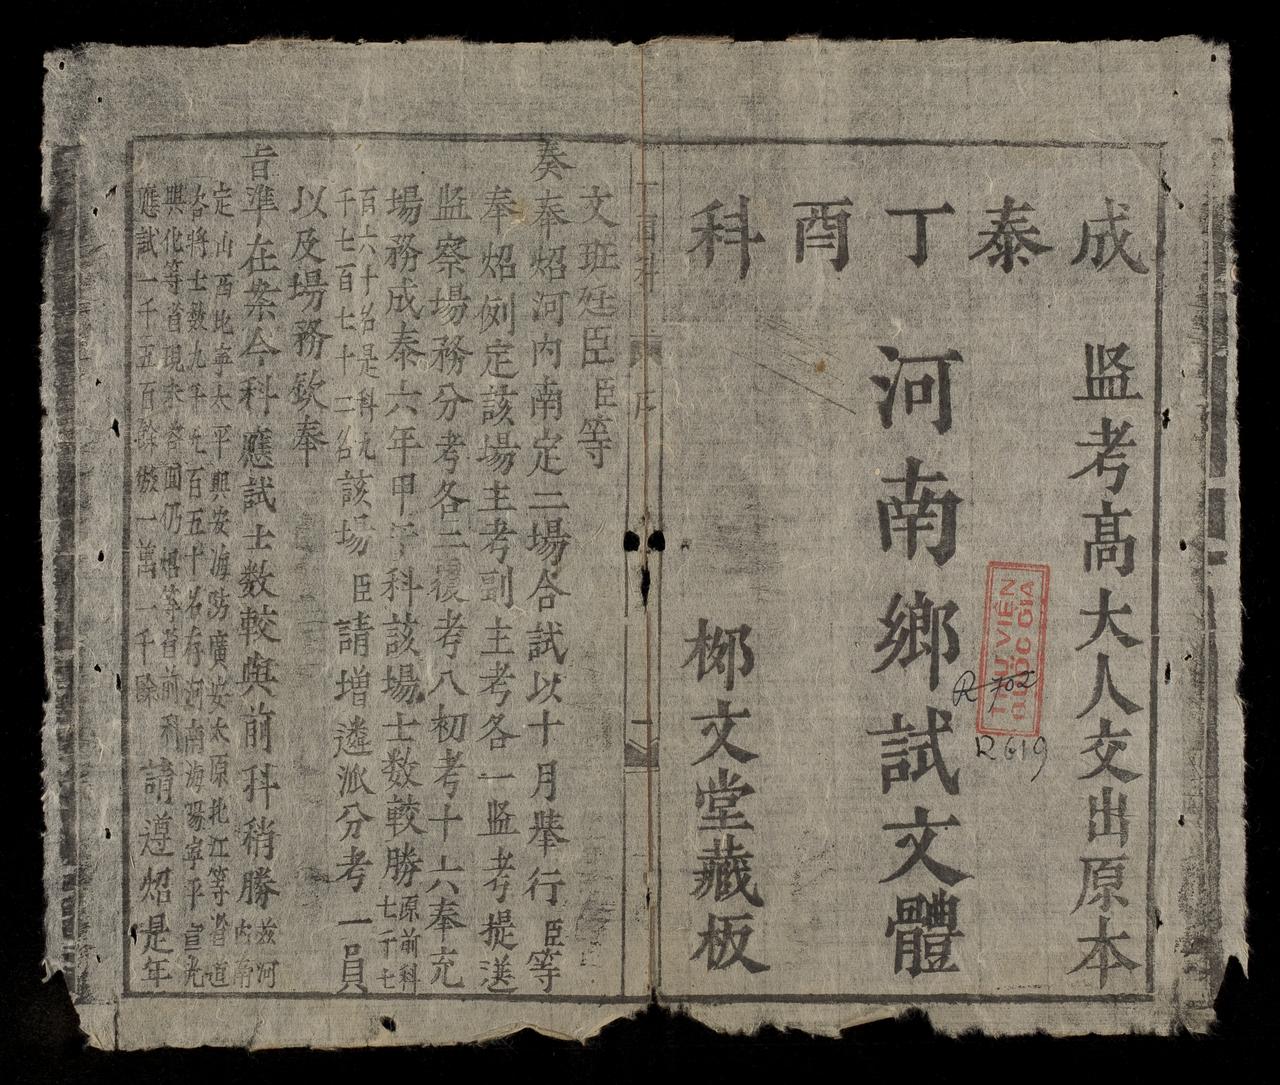 成泰丁酉科
監考高大人交出原本
河南鄉試文體
柳文堂藏板
THƯ VIỆN
QUỐC GIA
R 619
丁酉科 序 一
文班廷臣臣等
奏奉炤河內南定二場合試以十月舉行臣等
奉炤例定該場主考副主考各一監考提選
監察場務分考各二覆考八初考十六奉充
場務成泰六年甲午科該場士數較勝原前科七千七
百六十名是科九千七百七十二名該場臣請增遴派分考一員
以及場務欽奉
旨準在案今科應試士數較與前科稍勝茲河內南
定山西北寧太平興安海防廣安太原北江等省道
咨將士數九千九百五十名存河南海陽寧平宣光
興化等省現未咨回仍炤等省前科
應試一千五百餘倣一萬一千餘請遵炤是年